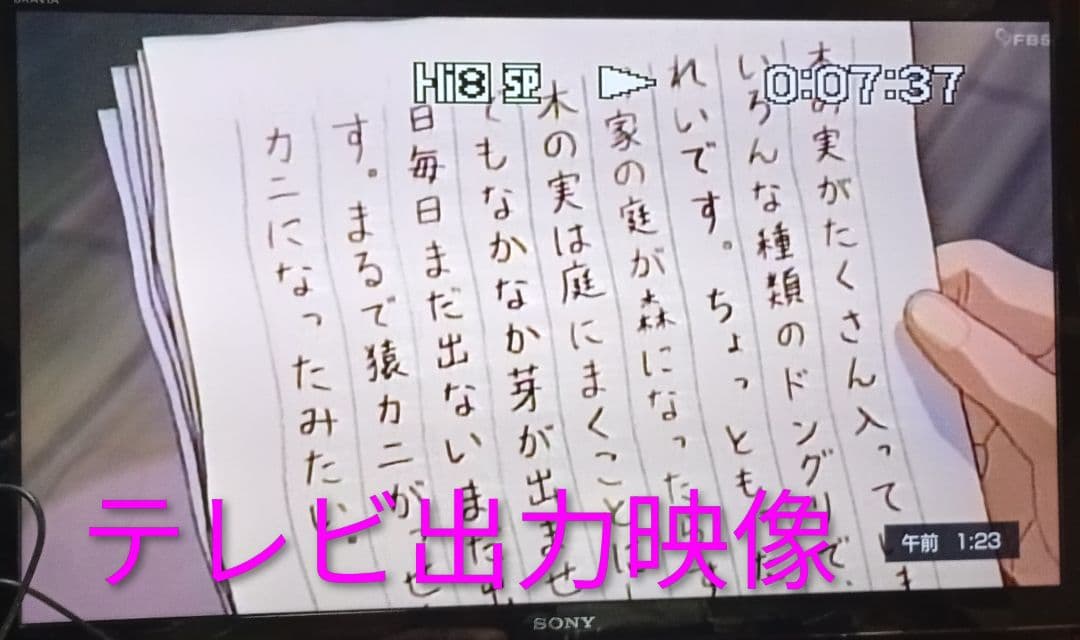 BRAVIA
FBS
Hi8 SP 0:07:37
の実がたくさん入って
いろんな種類のドングリで
れいです。ちょっとも
家の庭が森になった
木の実は庭にまくこと
もなかなか芽が出ませ
日毎日まだ出ないまだ
す。まるで猿カニがっせ
カニになったみたい。
テレビ出力映像
午前 1:23
SONY